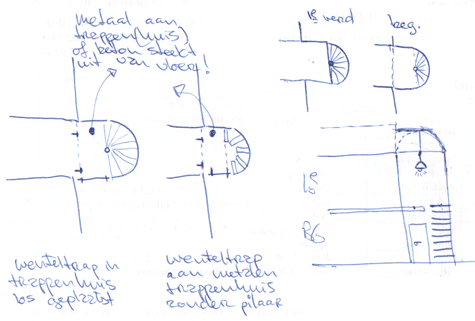 metaal aan
trappen(huis)
of beton steekt
uit van vloer!
1e verd
beg.
1e
BG
wenteltrap in
trappenhuis
los geplaatst
wenteltrap
aan metalen
trappenhuis
zonder pilaar